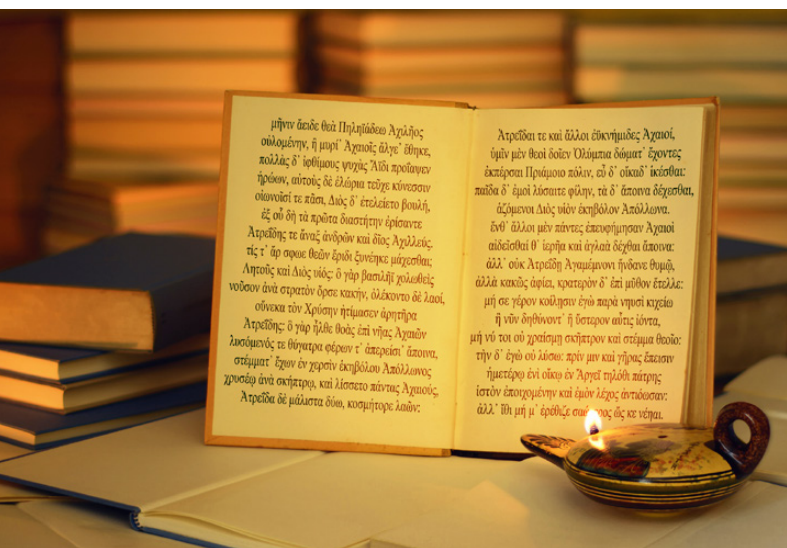 μῆνιν ἄειδε θεὰ Πηληϊάδεω Ἀχιλῆος
οὐλομένην, ἣ μυρί᾽ Ἀχαιοῖς ἄλγε᾽ ἔθηκε,
πολλὰς δ᾽ ἰφθίμους ψυχὰς Ἄϊδι προΐαψεν
ἡρώων, αὐτοὺς δὲ ἑλώρια τεῦχε κύνεσσιν
οἰωνοῖσί τε πᾶσι, Διὸς δ᾽ ἐτελείετο βουλή,
ἐξ οὗ δὴ τὰ πρῶτα διαστήτην ἐρίσαντε
Ἀτρεΐδης τε ἄναξ ἀνδρῶν καὶ δῖος Ἀχιλλεύς.
τίς τ᾽ ἄρ σφωε θεῶν ἔριδι ξυνέηκε μάχεσθαι;
Λητοῦς καὶ Διὸς υἱός: ὃ γὰρ βασιλῆϊ χολωθεὶς
νοῦσον ἀνὰ στρατὸν ὄρσε κακήν, ὀλέκοντο δὲ λαοί,
οὕνεκα τὸν Χρύσην ἠτίμασεν ἀρητῆρα
Ἀτρεΐδης: ὃ γὰρ ἦλθε θοὰς ἐπὶ νῆας Ἀχαιῶν
λυσόμενός τε θύγατρα φέρων τ᾽ ἀπερείσι᾽ ἄποινα,
στέμματ᾽ ἔχων ἐν χερσὶν ἑκηβόλου Ἀπόλλωνος
χρυσέῳ ἀνὰ σκήπτρῳ, καὶ λίσσετο πάντας Ἀχαιούς,
Ἀτρεΐδα δὲ μάλιστα δύω, κοσμήτορε λαῶν:
Ἀτρεΐδαι τε καὶ ἄλλοι ἐϋκνήμιδες Ἀχαιοί,
ὑμῖν μὲν θεοὶ δοῖεν Ὀλύμπια δώματ᾽ ἔχοντες
ἐκπέρσαι Πριάμοιο πόλιν, εὖ δ᾽ οἴκαδ᾽ ἱκέσθαι:
παῖδα δ᾽ ἐμοὶ λύσαιτε φίλην, τὰ δ᾽ ἄποινα δέχεσθαι,
ἁζόμενοι Διὸς υἱὸν ἑκηβόλον Ἀπόλλωνα.
ἔνθ᾽ ἄλλοι μὲν πάντες ἐπευφήμησαν Ἀχαιοὶ
αἰδεῖσθαί θ᾽ ἱερῆα καὶ ἀγλαὰ δέχθαι ἄποινα:
ἀλλ᾽ οὐκ Ἀτρεΐδῃ Ἀγαμέμνονι ἥνδανε θυμῷ,
ἀλλὰ κακῶς ἀφίει, κρατερὸν δ᾽ ἐπὶ μῦθον ἔτελλε:
μή σε γέρον κοίλῃσιν ἐγὼ παρὰ νηυσὶ κιχείω
ἢ νῦν δηθύνοντ᾽ ἢ ὕστερον αὖτις ἰόντα,
μή νύ τοι οὐ χραίσμῃ σκῆπτρον καὶ στέμμα θεοῖο:
τὴν δ᾽ ἐγὼ οὐ λύσω: πρίν μιν καὶ γῆρας ἔπεισιν
ἡμετέρῳ ἐνὶ οἴκῳ ἐν Ἄργεϊ τηλόθι πάτρης
ἱστὸν ἐποιχομένην καὶ ἐμὸν λέχος ἀντιόωσαν:
ἀλλ᾽ ἴθι μή μ᾽ ἐρέθιζε ὥς κε νέηαι.